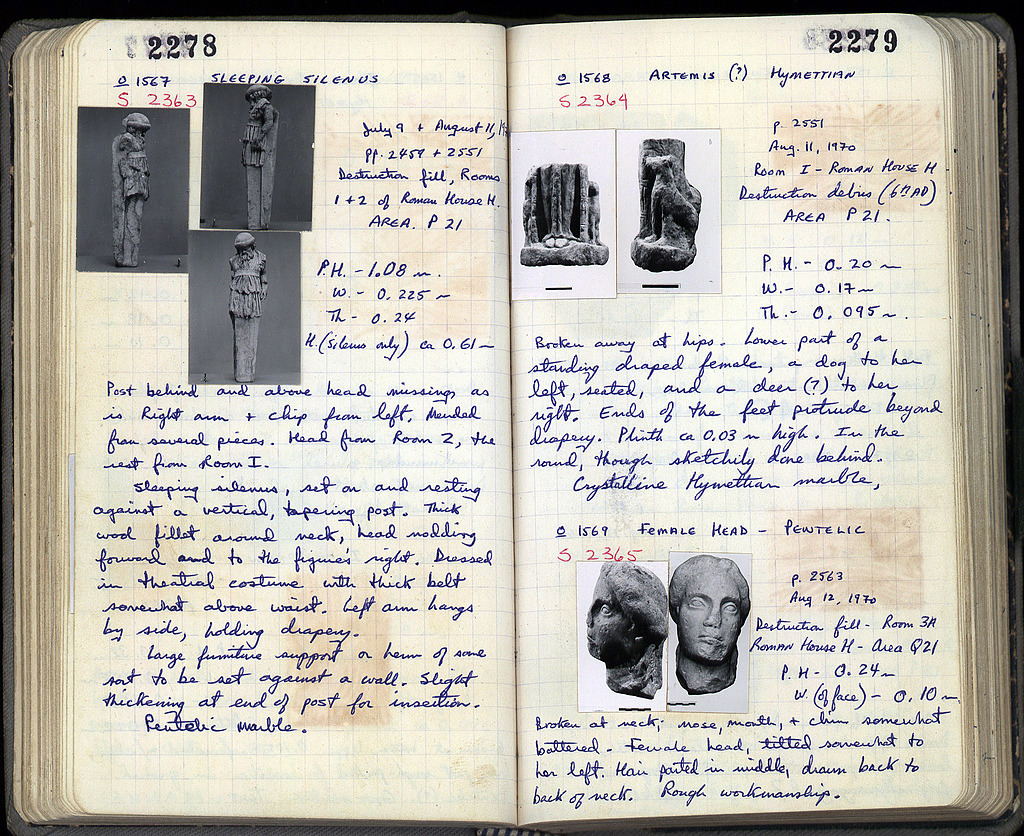 2278
O 1567 SLEEPING SILENUS
S 2363
July 9 + August 11, 19
pp. 2459 + 2551
Destruction fill, Rooms
1 + 2 of Roman House H.
AREA. P 21
P.H. - 1.08 m.
W. - 0.225 m
Th - 0.24
H. (Silenus only) ca 0.61 m
Post behind and above head missing as
is Right arm + chip from left. Mended
from several pieces. Head from Room 2, the
rest from Room I.
Sleeping silenus, set on and resting
against a vertical, tapering post. Thick
wool fillet around neck, head nodding
forward and to the figure's right. Dressed
in theatrial costume with thick belt
somewhat above waist. Left arm hangs
by side, holding drapery.
Large furniture support or herm of some
sort to be set against a wall. Slight
thickening at end of post for insertion.
Pentelic marble.
2279
O 1568 ARTEMIS (?) HYMETTIAN
S 2364
p. 2551
Aug. 11, 1970
Room I - Roman House H
Destruction debris (6th AD)
AREA P 21.
P.H. - 0.20 m
W. - 0.17 m
Th. - 0.095 m.
Broken away at hips. Lower part of a
standing draped female, a dog to her
left, seated, and a deer (?) to her
right. Ends of the feet protrude beyond
drapery. Plinth ca 0.03 m high. In the
round, though sketchily done behind.
Crystalline Hymettian marble,
O 1569 FEMALE HEAD - PENTELIC
S 2365
p. 2563
Aug 12, 1970
Destruction fill - Room 3A
Roman House H - Area Q21
P.H - 0.24 m
W. (of face) - 0.10 m
Broken at neck; nose, mouth, + chin somewhat
battered. Female head, tilted somewhat to
her left. Hair parted in middle, drawn back to
back of neck. Rough workmanship.